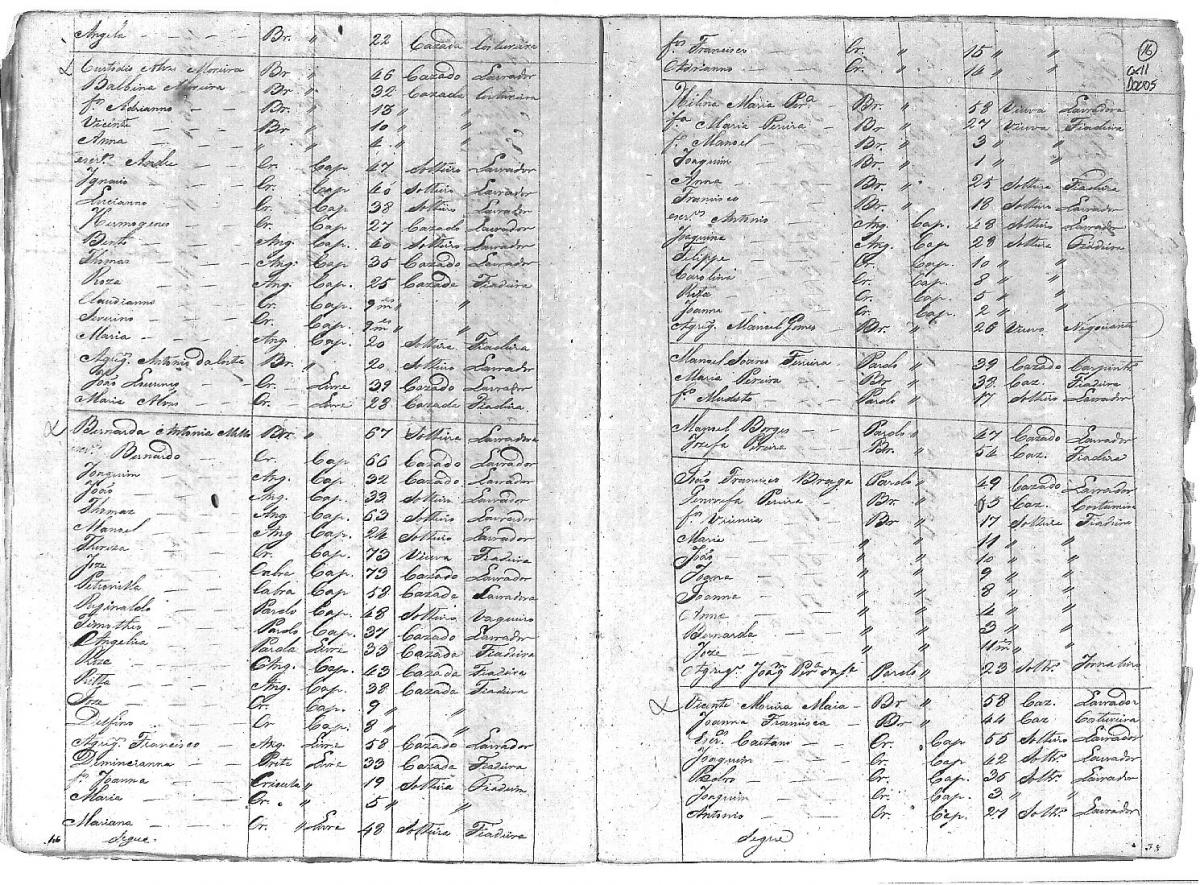 Angela Br. " 22 Cazada Costureira
Custodio Alvz Moreira Br " 46 Cazado Lavrador
Balbina Moreira Br " 32 Cazada Costureira
fº Adrianno Br. " 13 " "
Vicente Br " 10 " "
Anna " " 4 " "
escrº André Cr. Cap 47 Solteiro Lavrador
Ignacio Cr. Cap 46 Solteiro Lavrador
Lucianno Cr. Cap 38 Solteiro Lavrador
Hermogenes Cr. Cap 27 Cazado Lavrador
Bento Ang. Cap 40 Solteiro Lavrador
Thomas Ang. Cap. 35 Cazado Lavrador
Roza Ang. Cap. 25 Cazada Fiadeira
Claudianno Cr. Cap. 9 ms " "
Severino Cr. Cap. 9 ms " "
Maria Ang. Cap. 20 Solteira Fiadeira
Agregº Antonio da Costa Br. " 20 Solteiro Lavrador
João Lourenço Cr. Livre 39 Cazado Lavrador
Maria Alvz Cr. Livre 28 Cazada Fiadeira
Bernarda Antonia Br. " 67 Solteira Lavradora
escrº Bernardo Cr. Cap 66 Cazado Lavrador
Joaquim Ang. Cap 32 Cazado Lavrador
João Ang. Cap. 33 Solteiro Lavrador
Thomaz Ang. Cap. 53 Solteiro Lavrador
Manoel Ang Cap. 24 Solteiro Lavrador
Thereza Cr. Cap 73 Viuva Fiadeira
Joze Cabra Cap. 73 Cazado Lavrador
Petronilla Cabra Cap. 58 Cazada Lavradora
Reginaldo Pardo Cap. 48 Solteiro Vaqueiro
Timotheo Pardo Cap. 37 Cazado Lavrador
Angelica Parda Livre 33 Cazada Fiadeira
Roza Ang. Cap. 43 Cazada Fiadeira
Ritta Ang. Cap. 38 Cazada Fiadeira
Joze Cr. Cap. 9 " "
Delfino Cr Cap. 8 " "
Agregº Francisco Ang. Livre 58 Cazado Lavrador
Preta Livre 33 Cazada Fiadeira
fª Joanna Crioula " 19 Solteira Fiadeira
Maria Cr. " 5 " "
Mariana Cr. " Livre 48 Solteira Fiadeira
Segue.
16
CX11
DOC05
fos Francisco Cr. " 15 " "
Adrianno Cr. " 14 " "
Maria Perª Br. " 58 Viuva Lavradora
fª Maria Pereira Br " 27 Viuva Fiadeira
fº Manoel Br. " 3 " "
Joaquim Br. " 1 " "
Anna Br. " 25 Solteira Fiadeira
Francisco Br. " 18 Solteiro Lavrador
escros Antonio Ang Cap. 28 Solteiro Lavrador
Joaquina Ang. Cap 28 Solteira Fiadeira
Felippe Cr. Cap. 10 " "
Carolina Cr. Cap 8 " "
Rita Cr. Cap. 5 " "
Joanna Cr. Cap. 2 " "
Agregº Manoel Gomes Br. " 26 Viuvo Negociante
Manoel Soares Ferreira Pardo " 39 Cazado Carpintº
Maria Pereira Br " 32 Caz. Fiadeira
fº Modesto Pardo " 17 Solteiro Lavrador
Manoel Borges Pardo " 47 Cazado Lavrador
Jozefa Pereira Br. " 54 Caz. Fiadeira
João Francisco Braga Pardo " 49 Cazado Lavrador
Genovefa Pereira Br " 35 Caz. Costureira
fº Br " 17 Solteira Fiadeira
Maria " " 11 " "
João " " 10 " "
Joana " " 9 " "
Joanna " " 8 " "
Anna " " 4 " "
Bernarda " " 3 " "
Joze " " 11 ms " "
Agregº Joaqm Perª Pardo " 23 Soltº Jornaleiro
Vicente Moreira Maia Br " 58 Caz. Lavrador
Joanna Francisca Br " 44 Caz Costureira
escrº Caetano Cr. Cap 55 Solteiro Lavrador
Joaquim Cr. Cap 42 Soltº Lavrador
Pedro Cr. Cap. 36 Soltº Lavrador
Joaquim Cr. Cap. 3 " "
Antonio Cr. Cap. 27 Soltº Lavrador
Segue